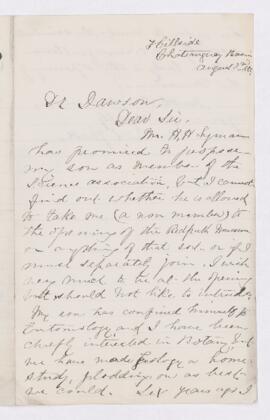 Hillside
Chateauguay Basin
August
Dr Dawson,
Dear Sir,
Mr. H. H. Lyman
has promised to propose
my son as member of the
Science association, but I cannot
find out whether he is allowed
to take me (a non member) to
the opening of the Redpath Museum
or anything of that sort or if I
must separately join. I wish
very much to be at the opening
but should not like to intrude.
My son has confined himself to
Entomology and I have been
chiefly interested in Botany but
we have made Geology a home
study plodding on as best
we could. Six years ago I